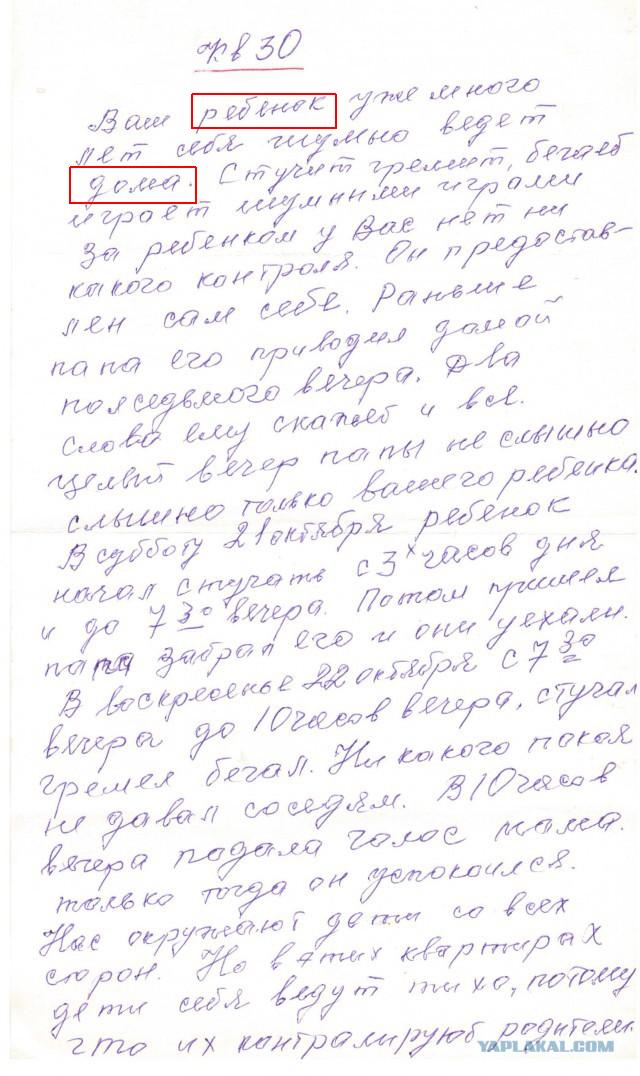 Кв 30
Ваш ребенок уже много
лет себя шумно ведет
дома. Стучит гремит, бегает
играет шумными играми
За ребенком у Вас нет ни
какого контроля. Он предостав-
лен сам себе. Раньше
папа его приводил домой
полседьмого вечера. Два
слова ему скажет и все.
Целый вечер папы не слышно
слышно только вашего ребенка.
В субботу 21 октября ребенок
начал стучать с 3х часов дня
и до 7 30 вечера. Потом пришел
папа забрал его и они уехали.
В воскресенье 22 октября с 7 30
вечера до 10 часов вечера, стучал
гремел бегал. Ни какого покоя
не давал соседям. В 10 часов
вечера подала голос мама.
только тогда он успокоился.
Нас окружают дети со всех
сторон. Но в этих квартирах
дети себя ведут тихо, потому
что их контралируют родители.
YAPLAKAL.COM